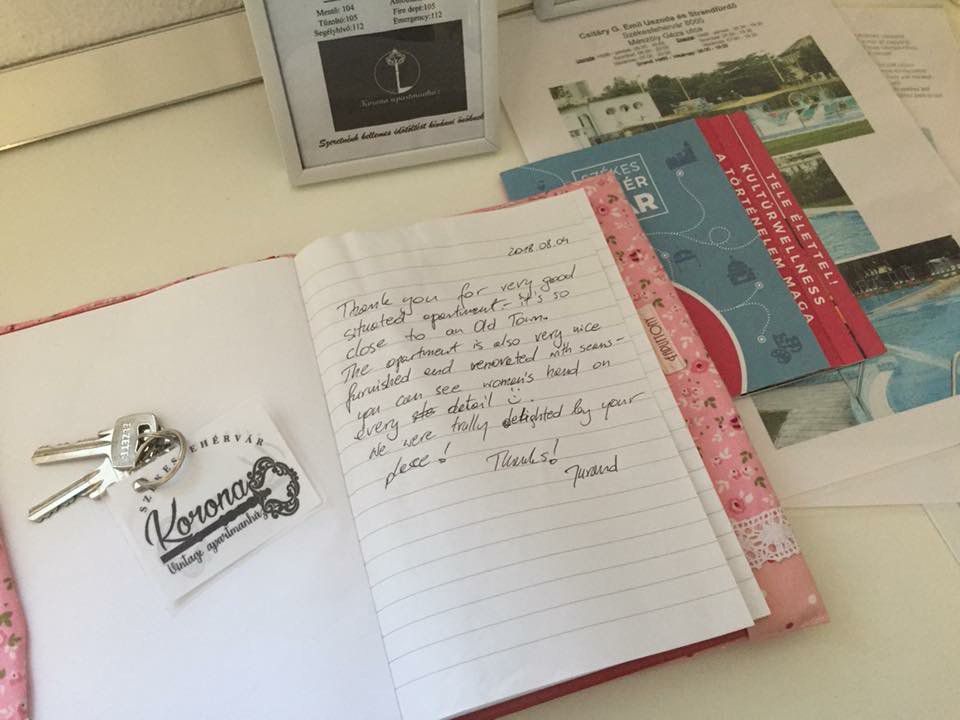 Mentő: 104
Tűzoltó:105
Segélyhívó:112
Fire dept:105
Emergency:112
Korona apartmanház
Szeretnénk kellemes időtöltést kívánni önöknek
Csitáry G. Emil Uszoda és Strandfürdő
Székesfehérvár 8000
Mészöly Géza utca
SZÉKES
FEHÉR
VÁR
TELE ÉLETTEL!
KULTÚRWELLNESS
A TÖRTÉNELEM MAGA
2018.08.04
Thank you for very good
situated apartment - it's so
close to an Old Town.
The apartment is also very nice
furnished and renovated with seans -
you can see women's hand on
every detail
We were trully delighted by your
place! Thanks!
Jurand
SZÉKESFEHÉRVÁR
Korona
Vintage apartmanház